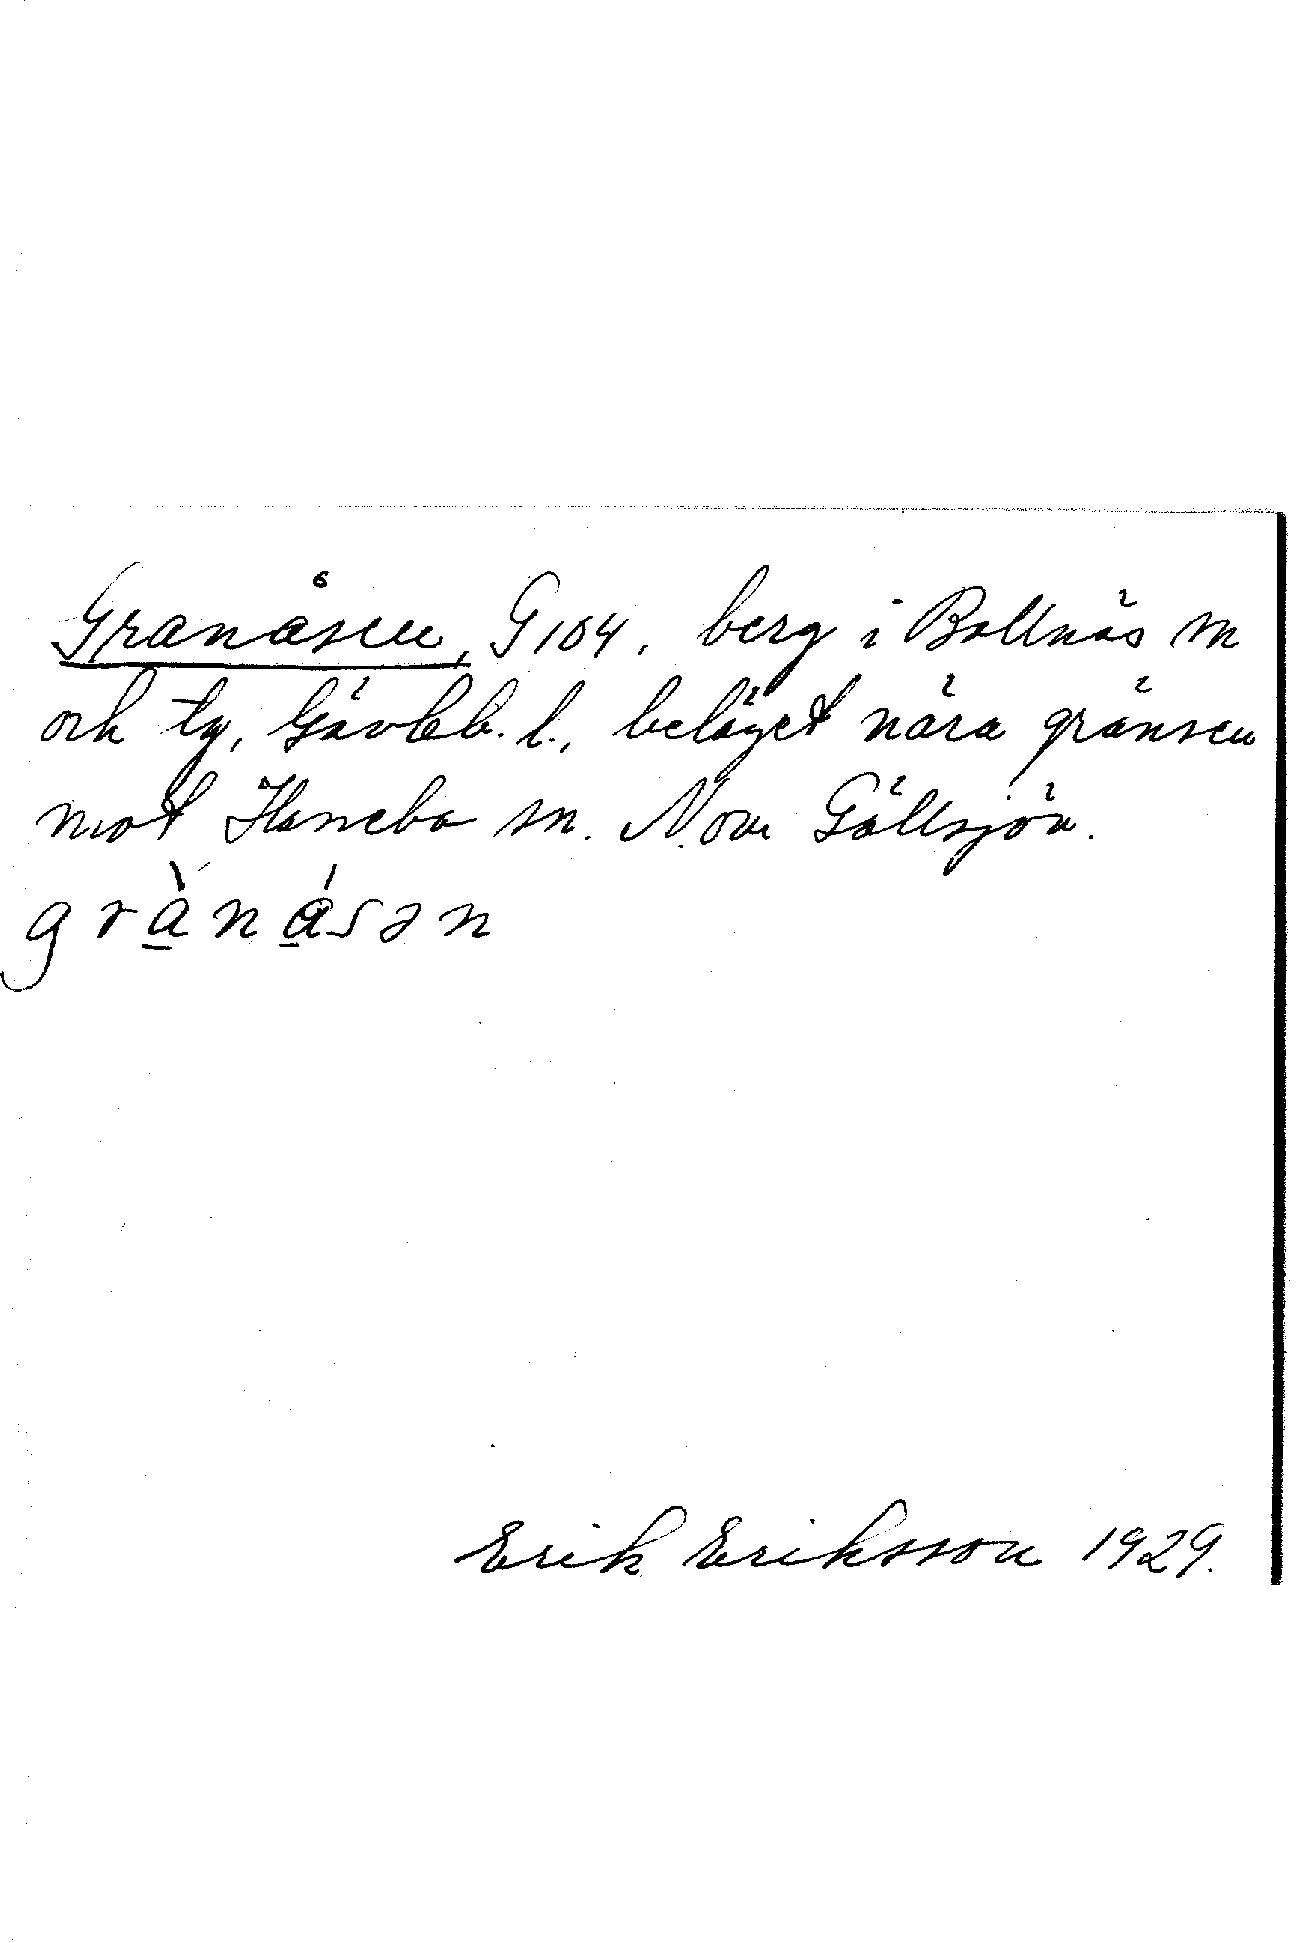 Granåsen, G 104, berg i Bollnäs sn
och tg, Gävleb. l., beläget nära gränsen
mot Hanebo sn. N. om Gällsjön.
grànásən
Erik Eriksson 1929.